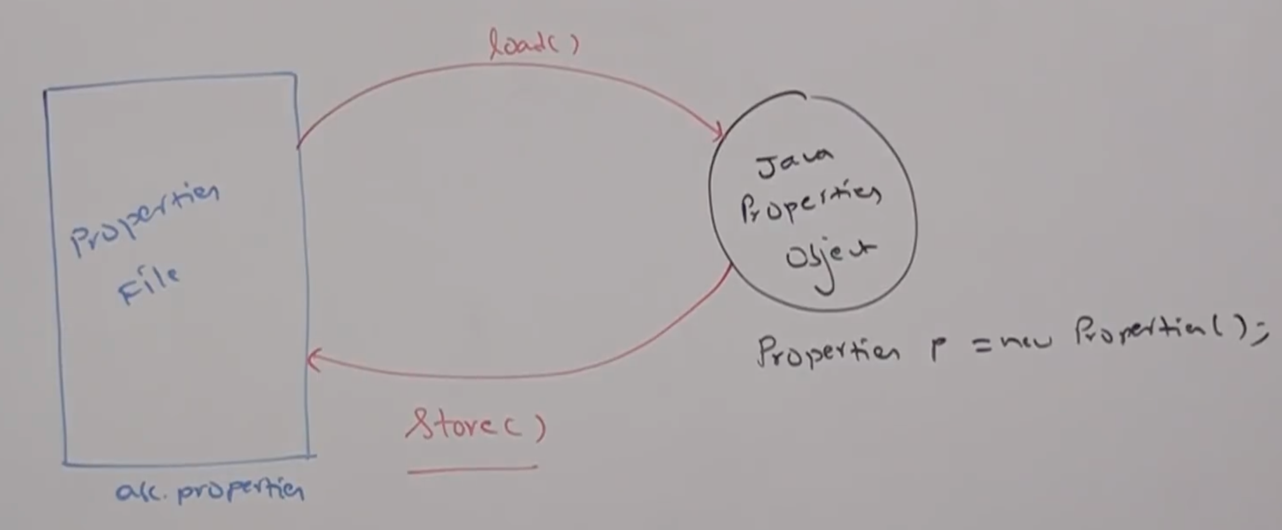 load()
Properties
File
Java
Properties
Object
Properties p = new Properties();
Store()
abc.properties